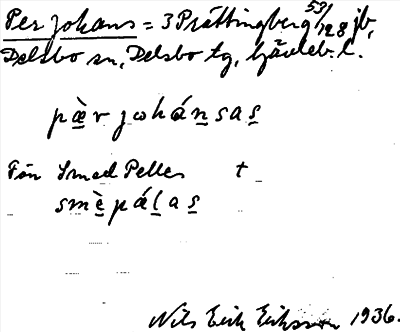 Per Johans = 3 Prästingberg 53/128 jb,
Delsbo sn, Delsbo tg, Gävleb. l.
pær johánsas
Från Smed Pelles t
smèpálas
Nils Erik Eriksson 1936.